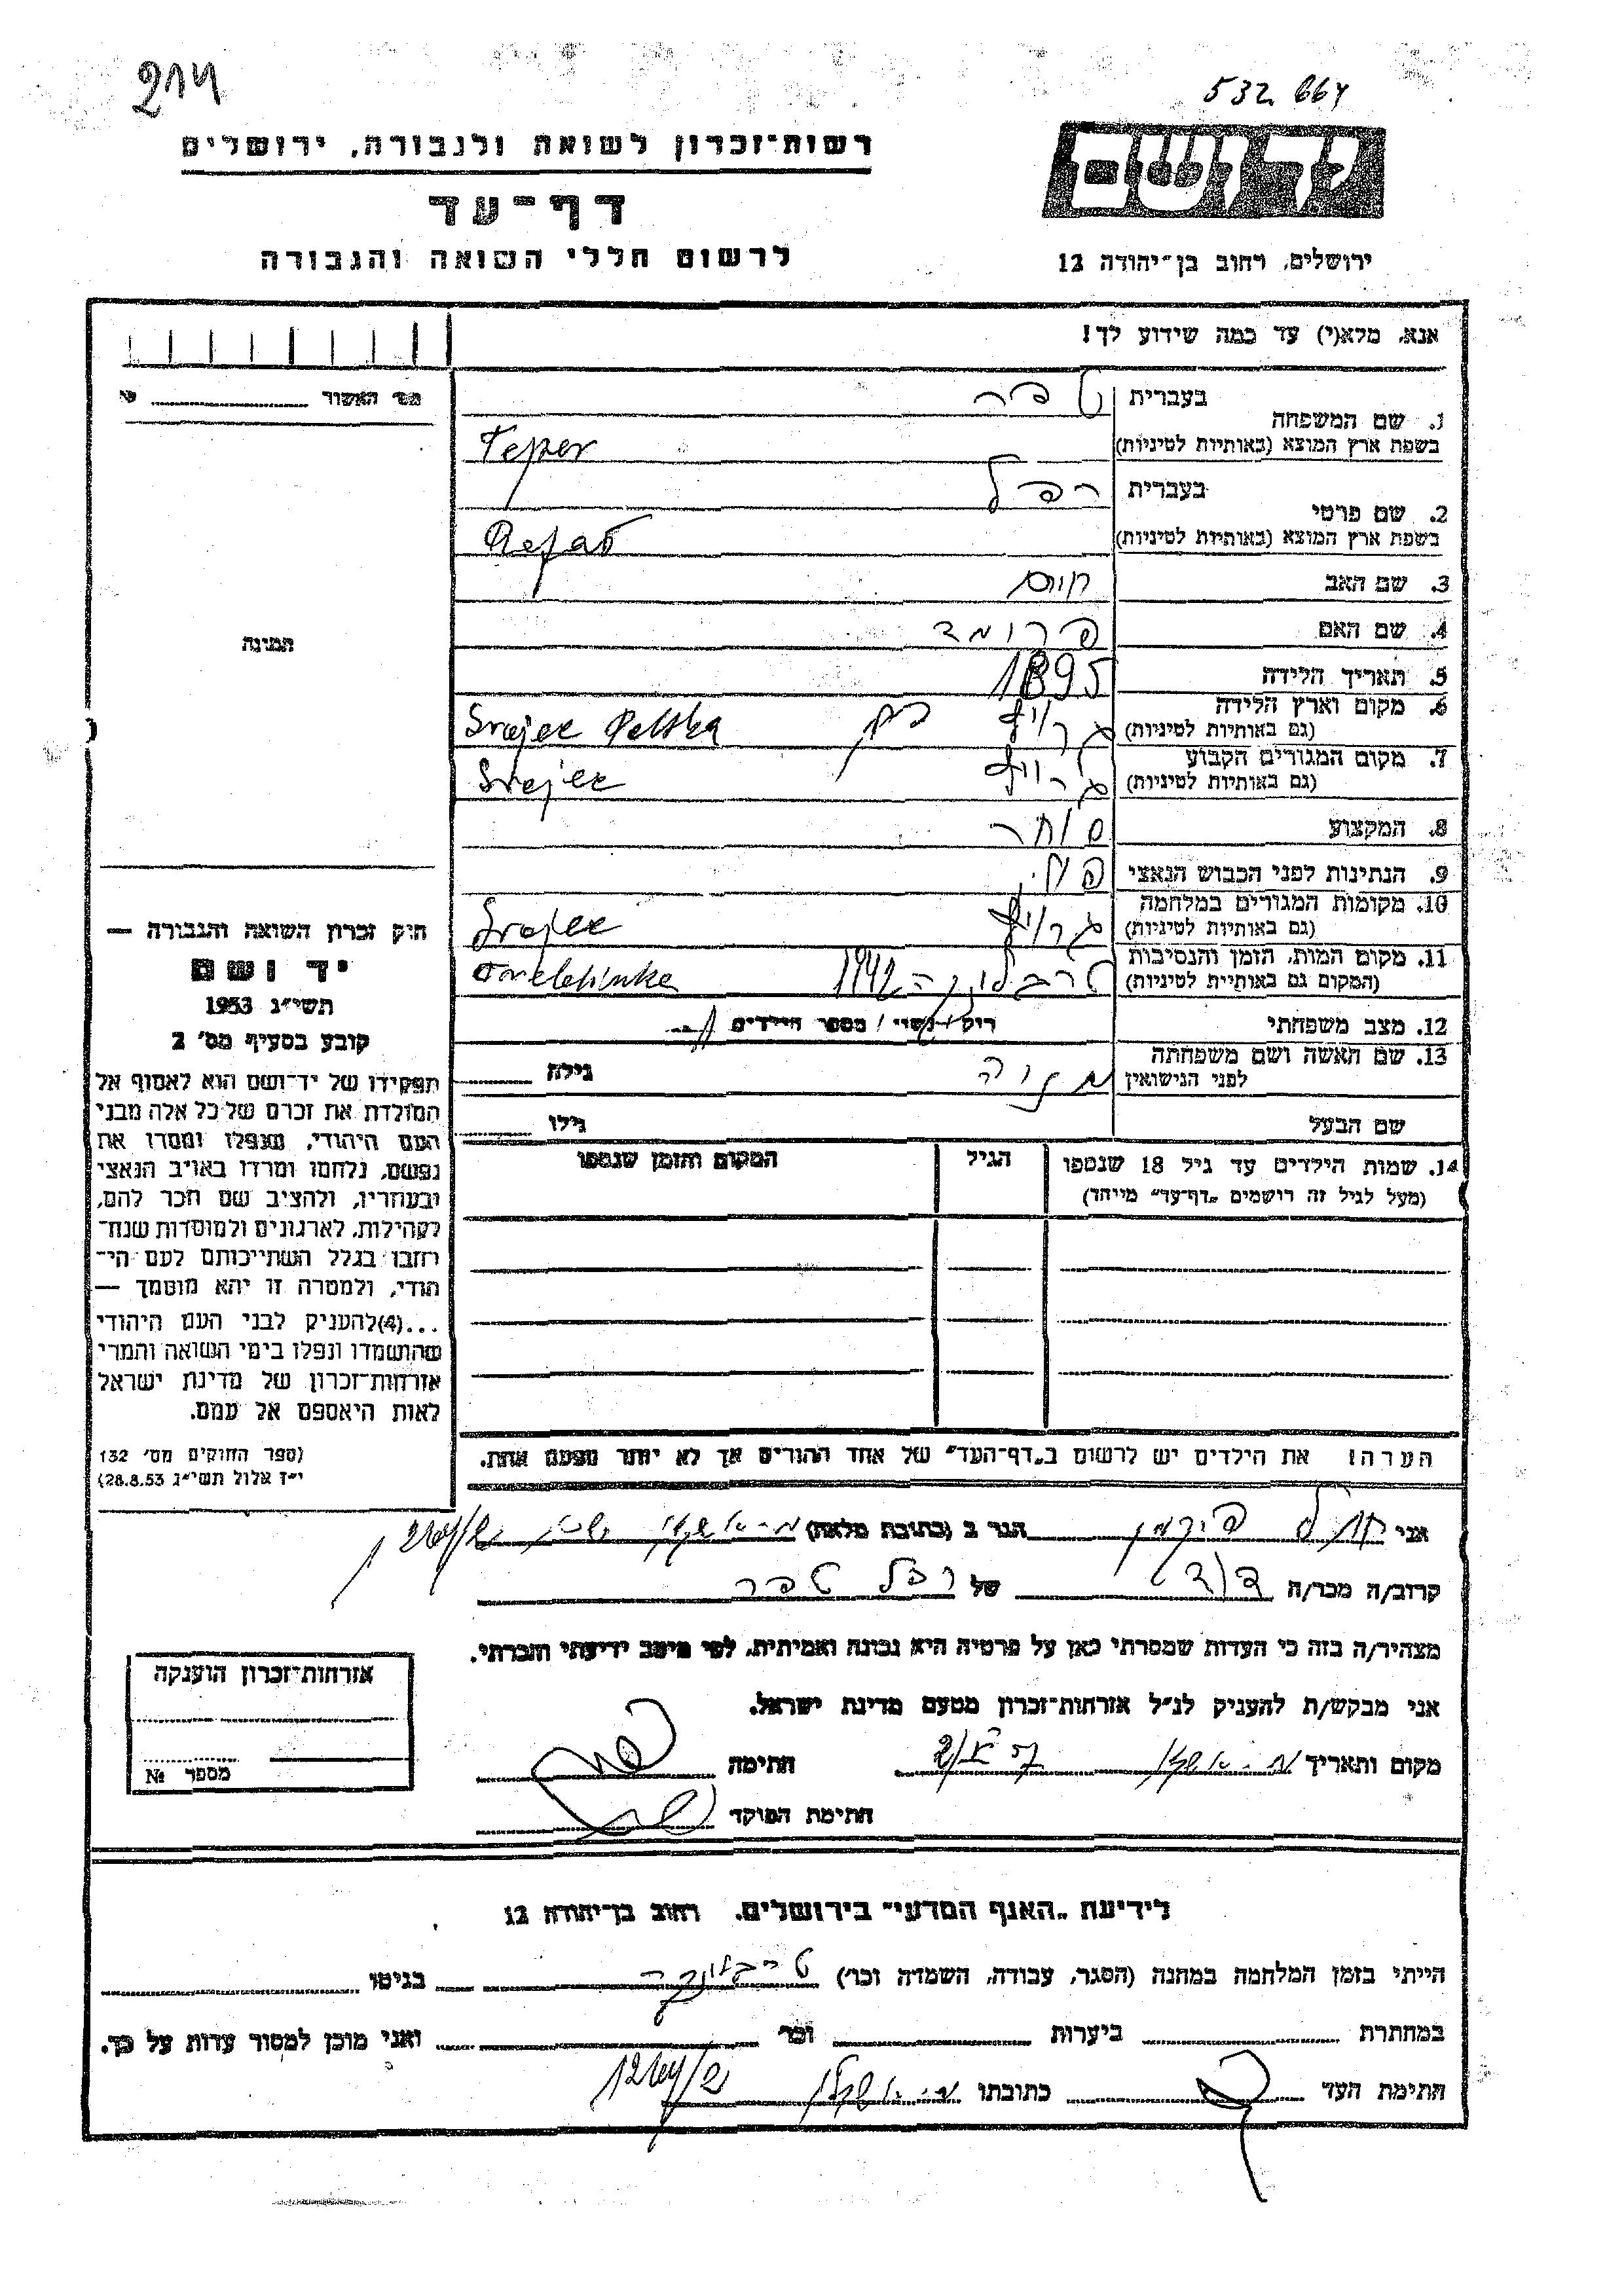 214
532 664
רשות־זכרון לשואה ולגבורה, ירושלים
דף־עד
לרשום חללי השואה והגבורה
יד ושם
ירושלים, רחוב בן־יהודה 12
אנא, מלא(י) עד כמה שידוע לך!
מס' האשור №
1. שם המשפחה בעברית טפר
בשפת ארץ המוצא (באותיות לטיניות) Teper
2. שם פרטי בעברית רפל
בשפת ארץ המוצא (באותיות לטיניות)
3. שם האב חיים
4. שם האם
5. תאריך הלידה 1895
6. מקום וארץ הלידה
(גם באותיות לטיניות) Polska
7. מקום המגורים הקבוע
(גם באותיות לטיניות)
8. המקצוע סוחר
9. הנתינות לפני הכבוש הנאצי פול.
10. מקומות המגורים במלחמה
(גם באותיות לטיניות)
11. מקום המות, הזמן והנסיבות
(המקום גם באותיות לטיניות) טרבלינקה 1942
12. מצב משפחתי רוק / נשוי / מספר הילדים
13. שם האשה ושם משפחתה
לפני הנישואין גילה
שם הבעל גילו
14. שמות הילדים עד גיל 18 שנספו הגיל המקום והזמן שנספו
(מעל לגיל זה רושמים "דף־עד" מיוחד)
הערה: את הילדים יש לרשום ב"דף־העד" של אחד ההורים אך לא יותר מפעם אחת.
תמונה
חוק זכרון השואה והגבורה —
יד ושם
תשי״ג 1953
קובע בסעיף מס' 2
תפקידו של יד־ושם הוא לאסוף אל
המולדת את זכרם של כל אלה מבני
העם היהודי, שנפלו ומסרו את
נפשם, נלחמו ומרדו באויב הנאצי
ובעוזריו, ולהציב שם וזכר להם,
לקהילות, לארגונים ולמוסדות שנח־
רבו בגלל השתייכותם לעם הי־
הודי, ולמטרה זו יהא מוסמך —
...(4)להעניק לבני העם היהודי
שהושמדו ונפלו בימי השואה והמרי
אזרחות־זכרון של מדינת ישראל
לאות היאספם אל עמם.
(ספר החוקים מס' 132
י״ז אלול תשי״ג 28.8.53)
אני הגר ב (כתובת מלאה)
קרוב/ה מכר/ה של רפל טפר
מצהיר/ה בזה כי העדות שמסרתי כאן על פרטיה היא נכונה ואמיתית, לפי מיטב ידיעתי והכרתי.
אני מבקש/ת להעניק לנ״ל אזרחות־זכרון מטעם מדינת ישראל.
מקום ותאריך חתימה
חתימת הפוקד
אזרחות־זכרון הוענקה
מספר №
לידיעת "האגף המדעי" בירושלים, רחוב בן־יהודה 12
הייתי בזמן המלחמה במחנה (הסגר, עבודה, השמדה וכו') טרבלינקה בגיטו
במחתרת ביערות וכו' ואני מוכן למסור עדות על כך.
חתימת העד כתובתו